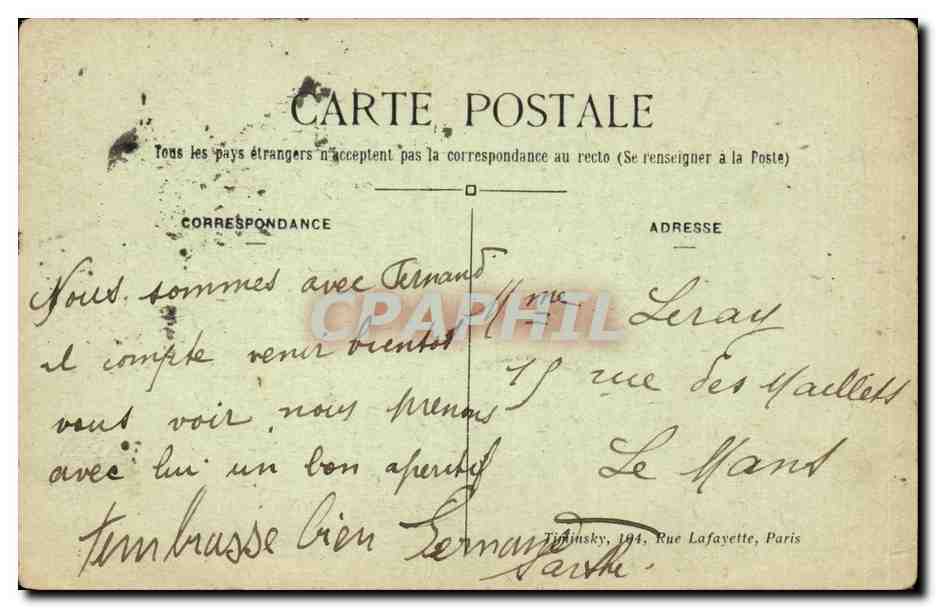 CARTE POSTALE
Tous les pays étrangers n'acceptent pas la correspondance au recto (Se renseigner à la Poste)
CORRESPONDANCE
Nous sommes avec Fernand
il compte venir bientot
vous voir nous prenons
avec lui un bon aperitif
t'embrasse bien Fernand
ADRESSE
Mme Leray
15 rue des Maillets
Le Mans
Sarthe.
Timinsky, 104, Rue Lafayette, Paris
CPAPHIL